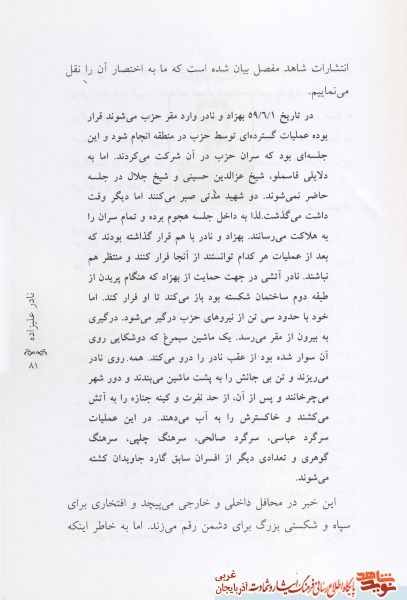 انتشارات شاهد مفصل بیان شده است که ما به اختصار آن را نقل
می‌نماییم.
در تاریخ ۵۹/۶/۱ بهزاد و نادر وارد مقر حزب می‌شوند قرار
بوده عملیات گسترده‌ای توسط حزب در منطقه انجام شود و این
جلسه‌ای بود که سران حزب در آن شرکت می‌کردند. اما به
دلایلی قاسملو، شیخ عزالدین حسینی و شیخ جلال در جلسه
حاضر نمی‌شوند. دو شهید مدتی صبر می‌کنند اما دیگر وقت
داشت می‌گذشت.لذا به داخل جلسه هجوم برده و تمام سران را
به هلاکت می‌رسانند. بهزاد و نادر با هم قرار گذاشته بودند که
بعد از عملیات هر کدام توانستند از آنجا فرار کنند و منتظر هم
نباشند. نادر آتشی در جهت حمایت از بهزاد که هنگام پریدن از
طبقه دوم ساختمان شکسته بود باز می‌کند تا او فرار کند. اما
خود با حدود سی تن از نیروهای حزب درگیر می‌شود. درگیری
به بیرون از مقر می‌رسد. یک ماشین سیمرغ که دوشکایی روی
آن سوار شده بود از عقب نادر را درو می‌کند. همه روی نادر
می‌ریزند و تن بی جانش را به پشت ماشین می‌بندند و دور شهر
می‌چرخانند و پس از آن، از حد نفرت و کینه جنازه را به آتش
می‌کشند و خاکسترش را به آب می‌دهند. در این عملیات
سرگرد عباسی، سرگرد صالحی، سرهنگ چلپی، سرهنگ
گوهری و تعدادی دیگر از افسران سابق گارد جاویدان کشته
می‌شوند.
این خبر در محافل داخلی و خارجی می‌پیچد و افتخاری برای
سپاه و شکستی بزرگ برای دشمن رقم می‌زند. اما به خاطر اینکه
نادر علیزاده
۸۱
نوید شاهد
پایگاه اطلاع رسانی فرهنگ ایثار و شهادت
آذربایجان غربی